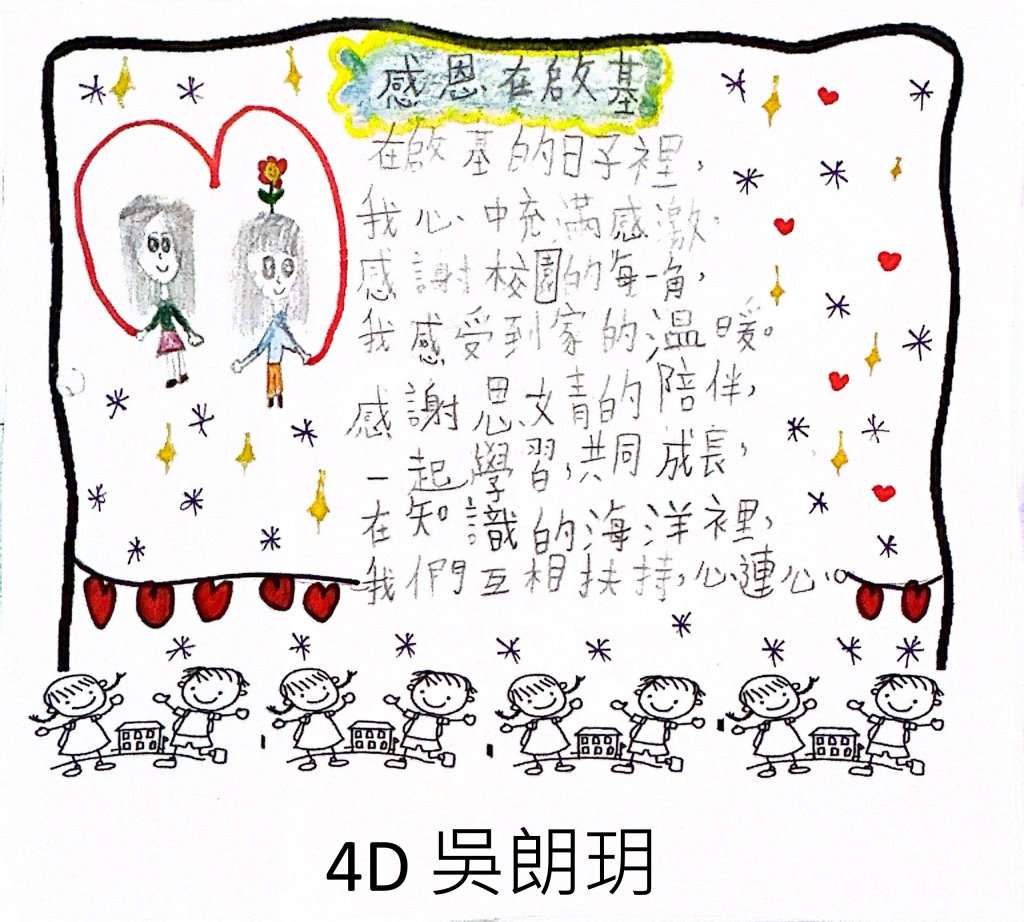 感恩在啟基
在啟基的日子裡，
我心中充滿感激，
感謝校園的每一角，
我感受到家的溫暖。
感謝思文青的陪伴，
一起學習，共同成長，
在知識的海洋裡，
我們互相扶持，心連心。
4D 吳朗玥